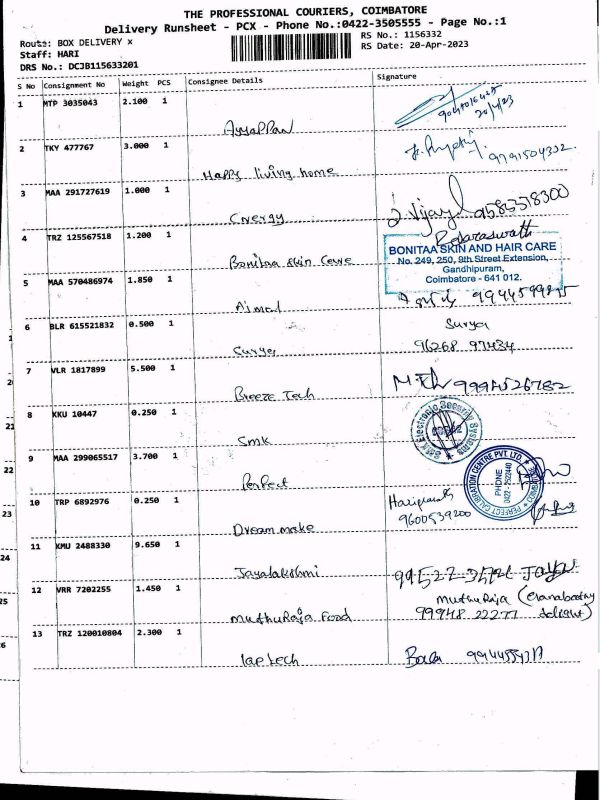 THE PROFESSIONAL COURIERS, COIMBATORE
Delivery Runsheet - PCX - Phone No.:0422-3505555 - Page No.:1
Route: BOX DELIVERY x
RS No.: 1156332
Staff: HARI
RS Date: 20-Apr-2023
DRS No.: DCJB115633201
S No Consignment No Weight PCS Consignee Details Signature
1 MTP 3035043 2.100 1
20/4/23
Ayyappan
2 TKY 477767 3.000 1
9791504332
Happy living home
3 MAA 291727619 1.000 1
Cnergy
J. Vijay 9583318300
4 TRZ 125567518 1.200 1
Bonitaa skin Cewe
BONITAA SKIN AND HAIR CARE
No. 249, 250, 9th Street Extension,
Gandhipuram,
Coimbatore - 641 012.
5 MAA 570486974 1.850 1
6 BLR 615521832 0.500 1
Surya
Surya
96268 97434
7 VLR 1817899 5.500 1
Breeze Tech
8 KKU 10447 0.250 1
SMK
SMK Electronic Security Systems
9 MAA 299065517 3.700 1
Perfect
PERFECT CALIBRATION CENTRE PVT. LTD.
PHONE
0422 - 2523440
10 TRP 6892976 0.250 1
9600539200
Dream make
11 KMU 2488330 9.650 1
Jayalakshmi
12 VRR 7202255 1.450 1
MuthuRaja
MuthuRaja Food
99948 22277
13 TRZ 120010804 2.300 1
lap tech
Bala